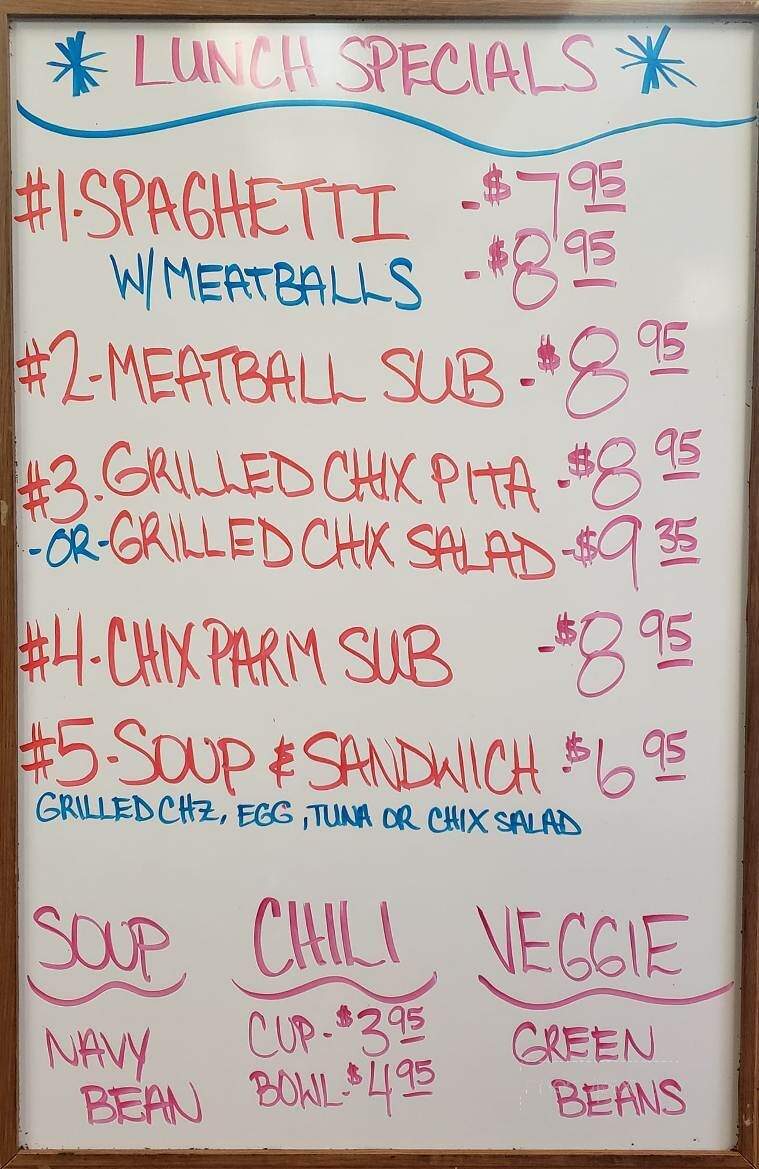 * LUNCH SPECIALS *
#1-SPAGHETTI -$7 95
W/MEATBALLS -$8 95
#2-MEATBALL SUB -$8 95
#3-GRILLED CHIX PITA -$8 95
-OR-GRILLED CHIX SALAD -$9 35
#4-CHIX PARM SUB -$8 95
#5-SOUP & SANDWICH -$6 95
GRILLED CHZ, EGG, TUNA OR CHIX SALAD
SOUP CHILI VEGGIE
NAVY CUP-$3 95 GREEN
BEAN BOWL-$4 95 BEANS